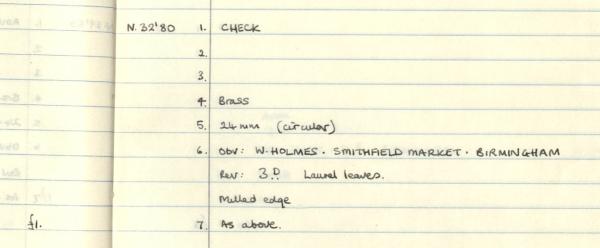 N.32'80 1. CHECK
2.
3.
4. Brass
5. 24mm (circular)
6. Obv: W. HOLMES · SMITHFIELD MARKET · BIRMINGHAM
Rev: 3D. Laurel leaves.
Milled edge
£1. 7. As above.